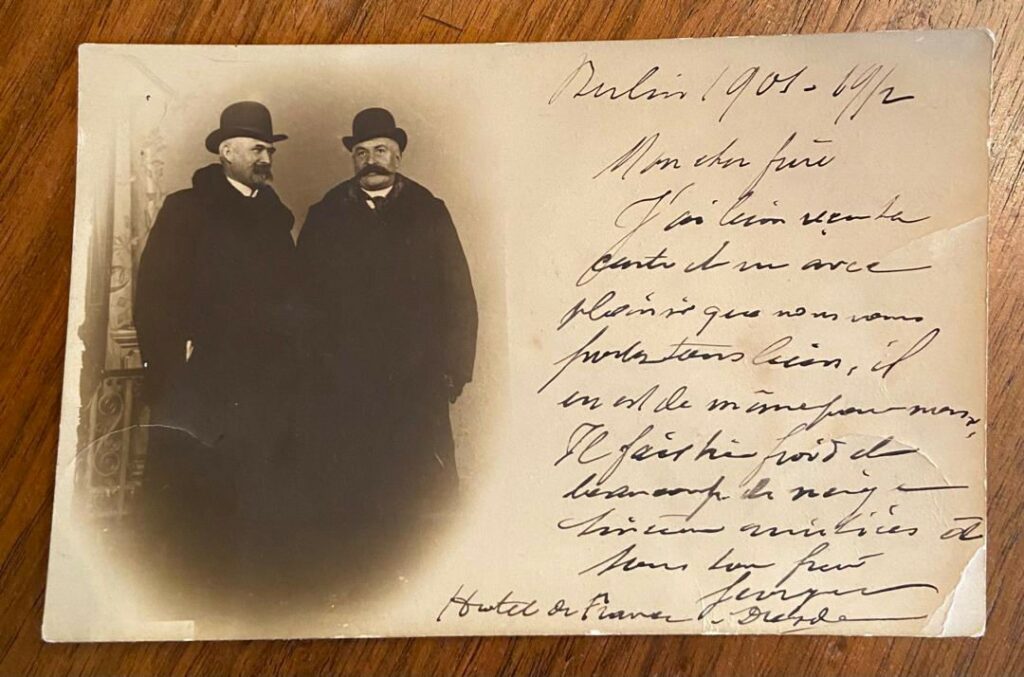 Berlin 1901 - 19/2
Mon cher frère
J'ai bien reçu ta
carte et vu avec
plaisir que vous vous
portez tous bien, il
en est de même pour nous,
Il fait très froid et
beaucoup de neige
Sincères amitiés à
tous ton frère
Georges
Hotel de France Dresde